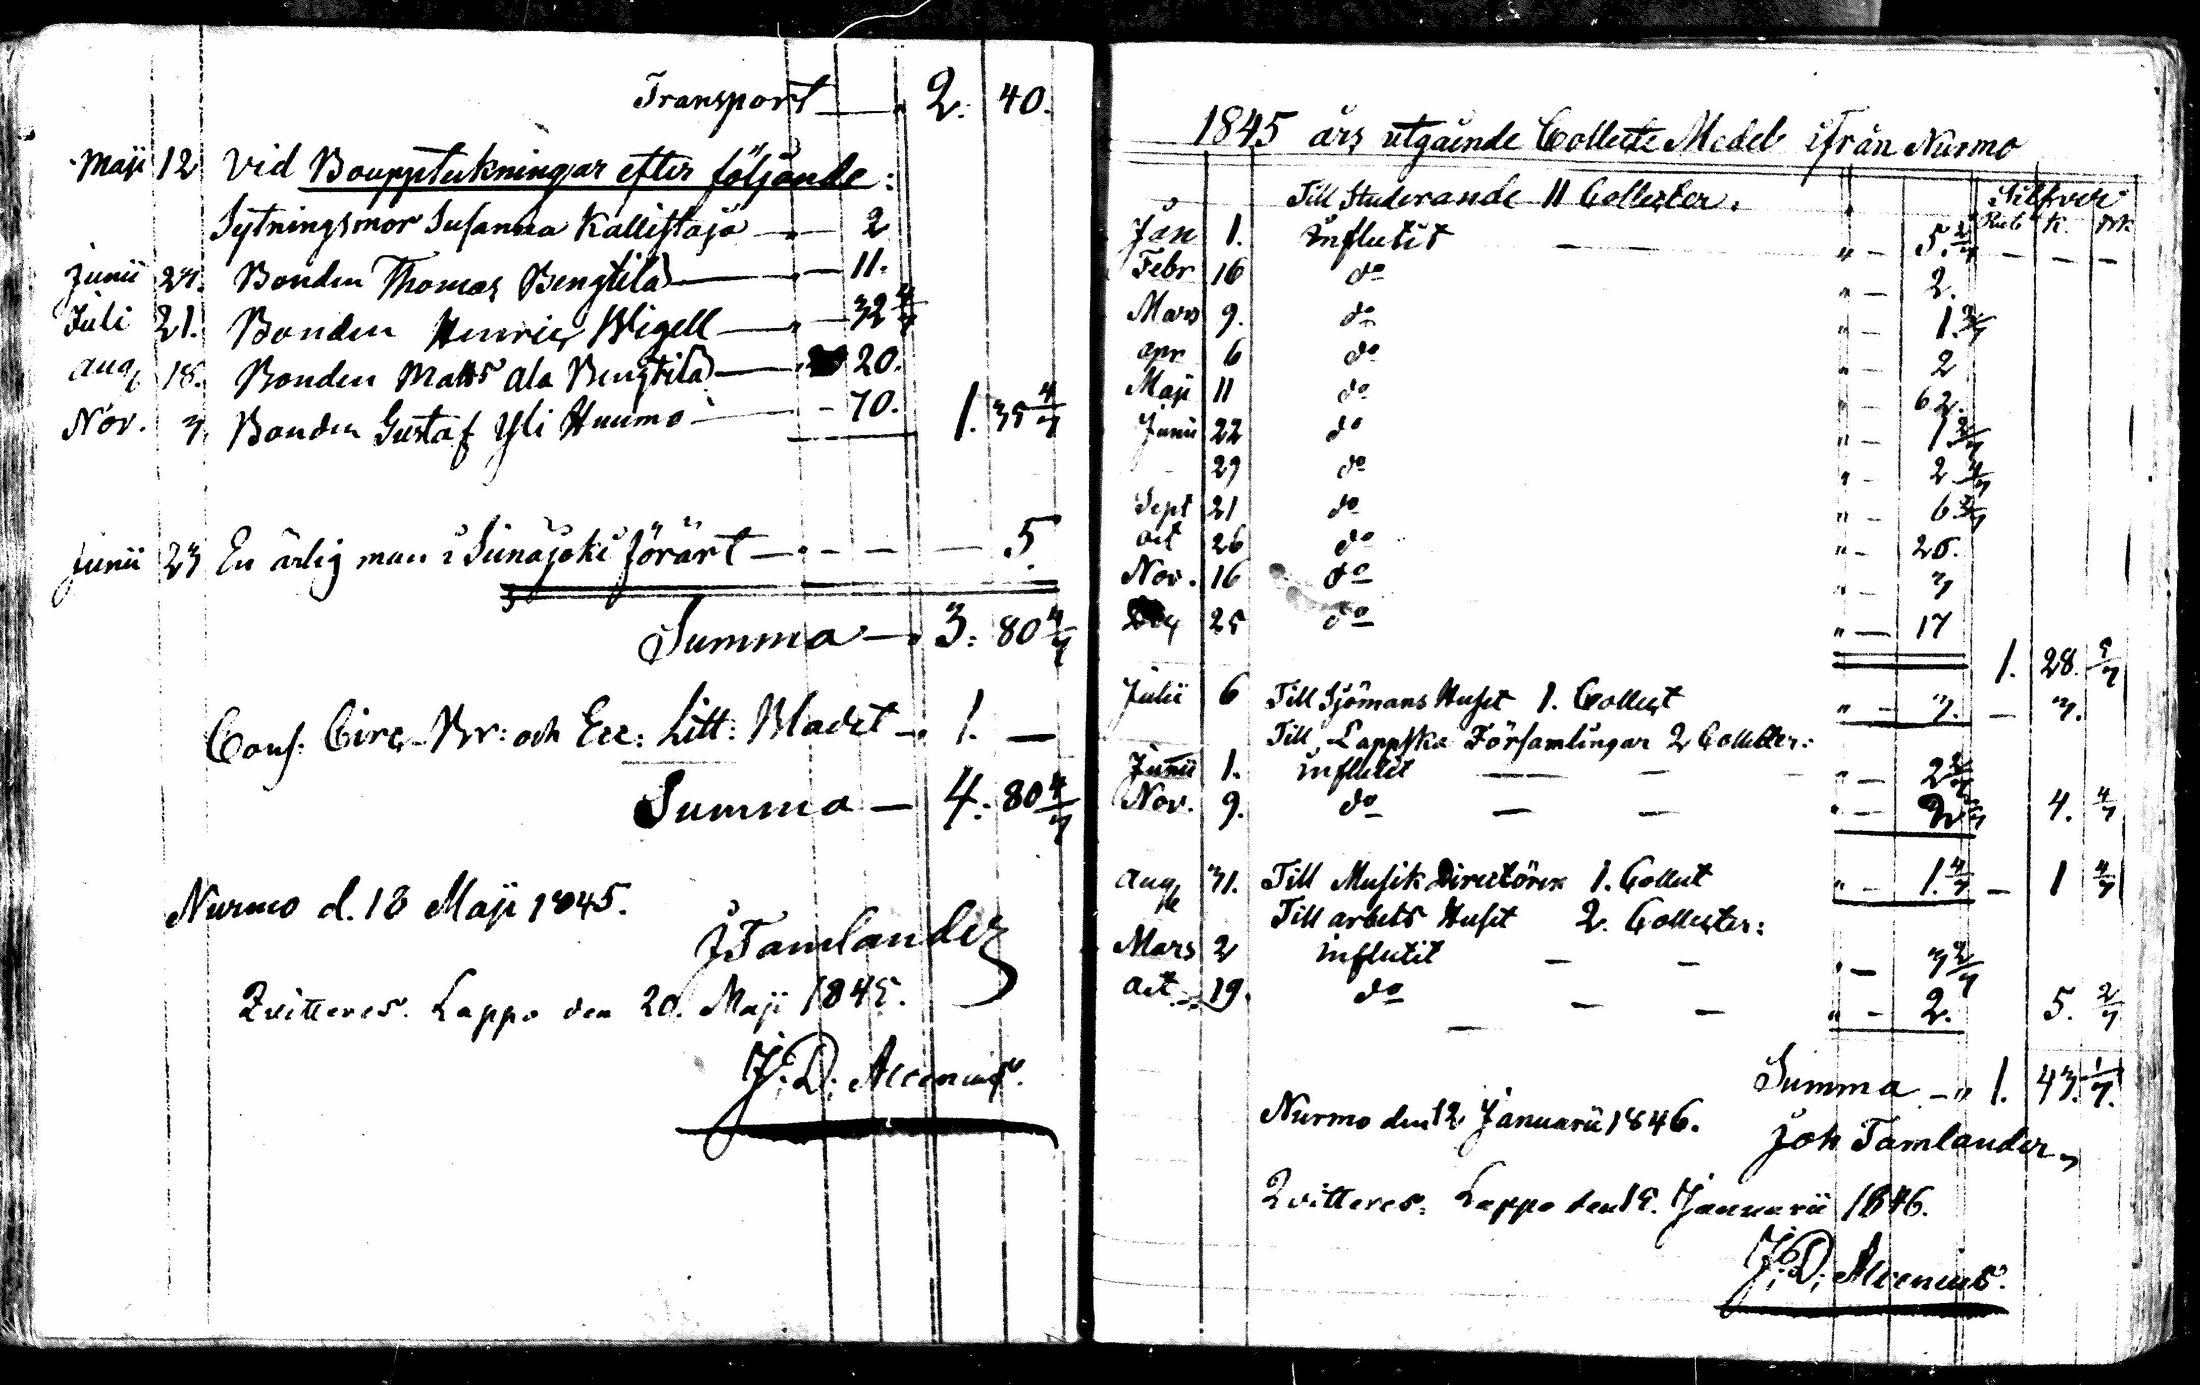 Transport — 2. 40.
Maji 12 Vid Boupptekningar efter följande:
Sytningsmor Susanna Kallistaja — 2
Junii 24. Bonden Thomas Bengtila — 11.
Juli 21. Bonden Henric Wigell — 32 4/7
Aug 18. Bonden Matts Ala Bengtila — 20.
Nov. 3. Bonden Gustaf Yli Huumo — 70. 1. 35 4/7
Junii 23 En ärlig man i Seinäjoki förärt — 5.
Summa — 3. 80 4/7
Cons: Circ. Br: och Ecc: Litt: Bladet — 1. —
Summa — 4. 80 4/7
Nurmo d. 18 Maji 1845.
J Tamlander
Qvitteres. Lappo den 20. Maji 1845.
J: D: Alcenius.
1845 års utgående Collecte Medel ifrån Nurmo
Till Studerande 11 Collecter. Silfver
Rub K. Brk
Jan 1. Influtit — " — 5 2/7 — — —
Febr 16 do " — 2.
Mars 9. do " — 1. 3/7
Apr 6 do " — 2
Maji 11 do " — 62.
Junii 22 do " — 1 2/7
— 29 do " — 2 4/7
Sept 21 do " — 6 2/7
Oct 26 do " — 25.
Nov. 16 do " — 3
25 do " — 17
1. 28. 5/7
Julii 6 Till Sjömans Huset 1. Collect " — 3. — 3.
Till Lappska Församlingar 2 Collecter:
Junii 1. influtit — — " — 2 2/7
Nov. 9. do — — " — 2 2/7 4. 4/7
Aug 31. Till Musik Directören 1. Collect " — 1. 4/7 — 1 4/7
Till arbets Huset 2. Collecter:
Mars 2 influtit — — " — 3 2/7
Oct. 19. do — — " — 2. 5. 2/7
Summa — " 1. 43. 1/7.
Nurmo den 12 Januarii 1846. Joh Tamlander
Qvitteres. Lappo den 15. Januarii 1846.
J: D: Alcenius.